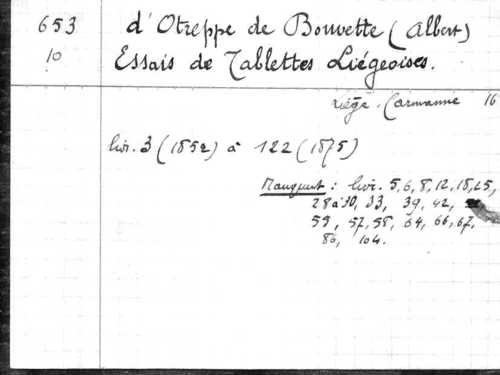 653 d'Otreppe de Bouvette (Albert)
10 Essais de Tablettes Liégeoises.
Liège. Carmanne 16
livr. 3 (1852) à 122 (1875)
Manquent : livr. 5, 6, 8, 12, 18, 25,
28 à 30, 33, 39, 42,
53, 57, 58, 64, 66, 67,
80, 104.